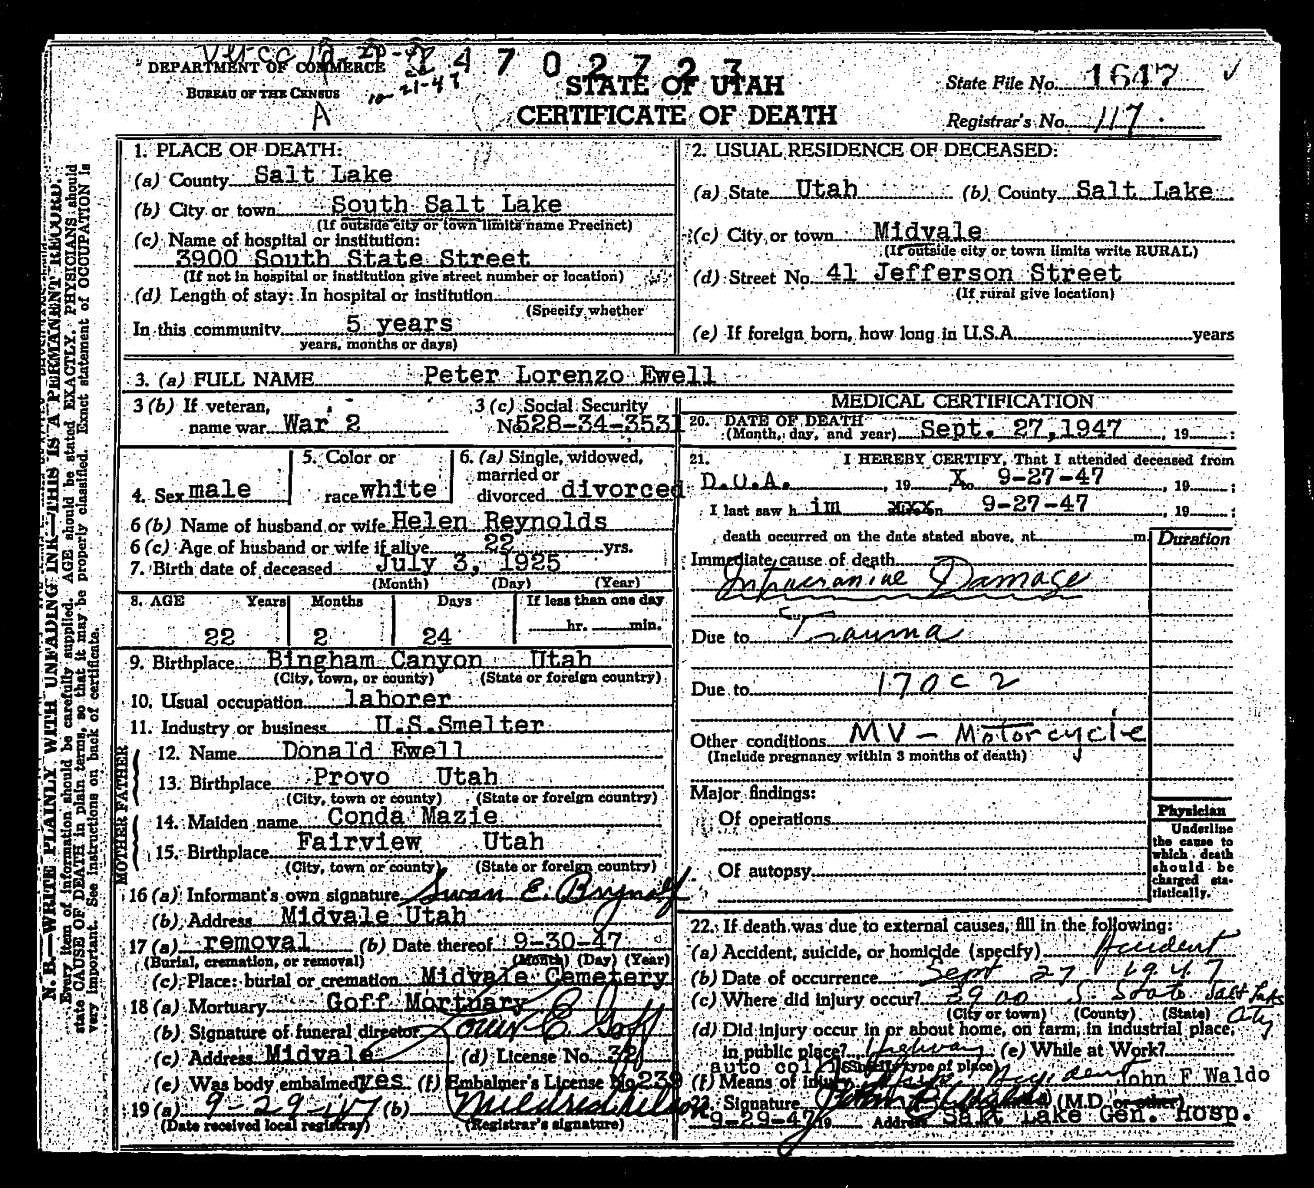 4702723
DEPARTMENT OF COMMERCE
BUREAU OF THE CENSUS
10-21-47
A
STATE OF UTAH
CERTIFICATE OF DEATH
State File No. 1647
Registrar's No. 117
N. B.—WRITE PLAINLY WITH UNFADING INK—THIS IS A PERMANENT RECORD.
Every item of information should be carefully supplied. AGE should be stated EXACTLY. PHYSICIANS should
state CAUSE OF DEATH in plain terms, so that it may be properly classified. Exact statement of OCCUPATION is
very important. See instructions on back of certificate.
1. PLACE OF DEATH:
(a) County Salt Lake
(b) City or town South Salt Lake
(If outside city or town limits name Precinct)
(c) Name of hospital or institution:
3900 South State Street
(If not in hospital or institution give street number or location)
(d) Length of stay: In hospital or institution
(Specify whether
In this community 5 years
years, months or days)
2. USUAL RESIDENCE OF DECEASED:
(a) State Utah (b) County Salt Lake
(c) City or town Midvale
(If outside city or town limits write RURAL)
(d) Street No. 41 Jefferson Street
(If rural give location)
(e) If foreign born, how long in U.S.A. years
3. (a) FULL NAME Peter Lorenzo Ewell
3 (b) If veteran, name war War 2
3 (c) Social Security No. 528-34-3531
4. Sex male
5. Color or race white
6. (a) Single, widowed, married or divorced divorced
6 (b) Name of husband or wife Helen Reynolds
6 (c) Age of husband or wife if alive 22 yrs.
7. Birth date of deceased July 3, 1925
(Month) (Day) (Year)
8. AGE Years Months Days If less than one day
22 2 24 hr. min.
9. Birthplace Bingham Canyon Utah
(City, town, or county) (State or foreign country)
10. Usual occupation laborer
11. Industry or business U.S.Smelter
FATHER
12. Name Donald Ewell
13. Birthplace Provo Utah
(City, town or county) (State or foreign country)
MOTHER
14. Maiden name Conda Mazie
15. Birthplace Fairview Utah
(City, town or county) (State or foreign country)
16 (a) Informant's own signature Swan E. Brynolf
(b) Address Midvale Utah
17 (a) removal (b) Date thereof 9-30-47
(Burial, cremation, or removal) (Month) (Day) (Year)
(c) Place: burial or cremation Midvale Cemetery
18 (a) Mortuary Goff Mortuary
(b) Signature of funeral director Louis E. Goff
(c) Address Midvale (d) License No.
(e) Was body embalmed yes (f) Embalmer's License No 239
19 (a) 9-29-47 (b) Mildred Nelson
(Date received local registrar) (Registrar's signature)
MEDICAL CERTIFICATION
20. DATE OF DEATH
(Month, day, and year) Sept. 27, 1947, 19 :
21. I HEREBY CERTIFY, That I attended deceased from
D.O.A. , 19 X to 9-27-47 , 19 ;
I last saw h im xxxn 9-27-47 , 19 ;
death occurred on the date stated above, at m.
Duration
Immediate cause of death
Intracranial Damage
Due to Trauma
Due to 170c2
Other conditions MV - Motorcycle
(Include pregnancy within 3 months of death)
Major findings:
Of operations
Of autopsy
Physician
Underline
the cause to
which death
should be
charged sta-
tistically.
22. If death was due to external causes, fill in the following:
(a) Accident, suicide, or homicide (specify) Accident
(b) Date of occurrence Sept 27 1947
(c) Where did injury occur? 3900 S. State Salt Lake City
(City or town) (County) (State)
(d) Did injury occur in or about home, on farm, in industrial place,
in public place? Highway (e) While at Work?
(Specify type of place)
(f) Means of injury Auto Accident
John F Waldo
23. Signature (M.D. or other)
9-29-47 19 Address Salt Lake Gen. Hosp.